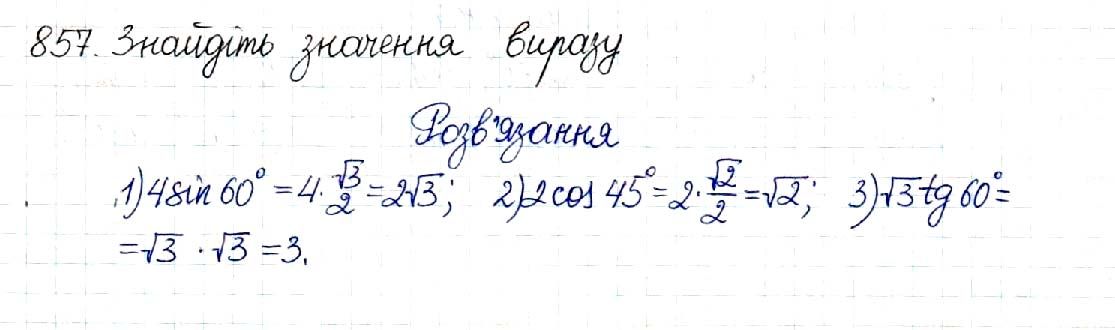 857. Знайдіть значення виразу
Розв'язання
1) 4 sin 60° = 4 · √3/2 = 2√3; 2) 2 cos 45° = 2 · √2/2 = √2; 3) √3 tg 60° =
= √3 · √3 = 3.